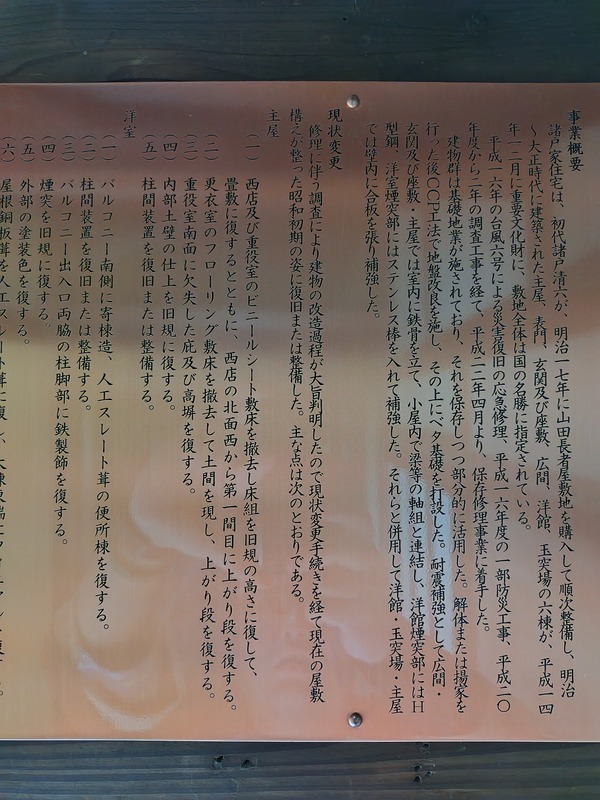 事業概要
諸戸家住宅は、初代諸戸清六が、明治一七年に山田長者屋敷地を購入して順次整備し、明治
〜大正時代に建築された主屋、表門、玄関及び座敷、広間、洋館、玉突場の六棟が、平成一四
年一二月に重要文化財に、敷地全体は国の名勝に指定されている。
平成一六年の台風六号による災害復旧の応急修理、平成一六年度の一部防災工事、平成二〇
年度から二年の調査工事を経て、平成二二年四月より、保存修理事業に着手した。
建物群は基礎地業が施されており、それを保存しつつ部分的に活用した。解体または揚家を
行った後CCP工法で地盤改良を施し、その上にベタ基礎を打設した。耐震補強として広間・
玄関及び座敷・主屋では室内に鉄骨を立て、小屋内で梁等の軸組と連結し、洋館煙突部にはH
型鋼・洋室煙突部にはステンレス棒を入れて補強した。それらと併用して洋館・玉突場・主屋
では壁内に合板を張り補強した。
現状変更
修理に伴う調査により建物の改造過程が大旨判明したので現状変更手続きを経て現在の屋敷
構えが整った昭和初期の姿に復旧または整備した。主な点は次のとおりである。
主屋
(一) 西店及び重役室のビニールシート敷床を撤去し床組を旧規の高さに復して、
畳敷に復するとともに、西店の北面西から第一間目に上がり段を復する。
(二) 更衣室のフローリング敷床を撤去して土間を現し、上がり段を復する。
(三) 重役室南面に欠失した庇及び高塀を復する。
(四) 内部土壁の仕上を旧規に復する。
(五) 柱間装置を復旧または整備する。
洋室
(一) バルコニー南側に寄棟造、人工スレート葺の便所棟を復する。
(二) 柱間装置を復旧または整備する。
(三) バルコニー出入口両脇の柱脚部に鉄製飾を復する。
(四) 煙突を旧規に復する。
(五) 外部の塗装色を復する。
(六) 屋根銅板葺を人工スレート葺に復し、